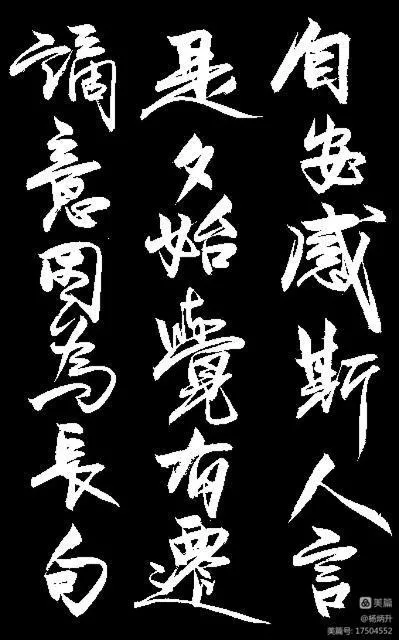 自安感斯人言
是夕始覺有遷
謫意因為長句
美篇
@杨炳升
美篇号: 17504552